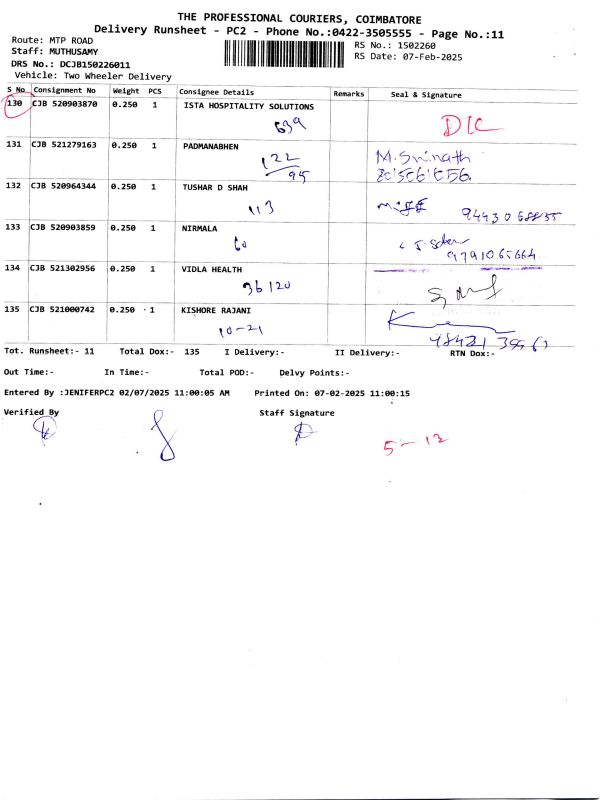 THE PROFESSIONAL COURIERS, COIMBATORE
Delivery Runsheet - PC2 - Phone No.:0422-3505555 - Page No.:11
Route: MTP ROAD
RS No.: 1502260
Staff: MUTHUSAMY
RS Date: 07-Feb-2025
DRS No.: DCJB150226011
Vehicle: Two Wheeler Delivery
S No Consignment No Weight PCS Consignee Details Remarks Seal & Signature
130 CJB 520903870 0.250 1 ISTA HOSPITALITY SOLUTIONS
639
131 CJB 521279163 0.250 1 PADMANABHEN
122
95
M. Srinath
132 CJB 520964344 0.250 1 TUSHAR D SHAH
113
133 CJB 520903859 0.250 1 NIRMALA
60
9791065664
134 CJB 521302956 0.250 1 VIDLA HEALTH
36120
135 CJB 521000742 0.250 1 KISHORE RAJANI
10-21
Tot. Runsheet:- 11 Total Dox:- 135 I Delivery:- II Delivery:- RTN Dox:-
Out Time:- In Time:- Total POD:- Delvy Points:-
Entered By :JENIFERPC2 02/07/2025 11:00:05 AM Printed On: 07-02-2025 11:00:15
Verified By Staff Signature
5-12